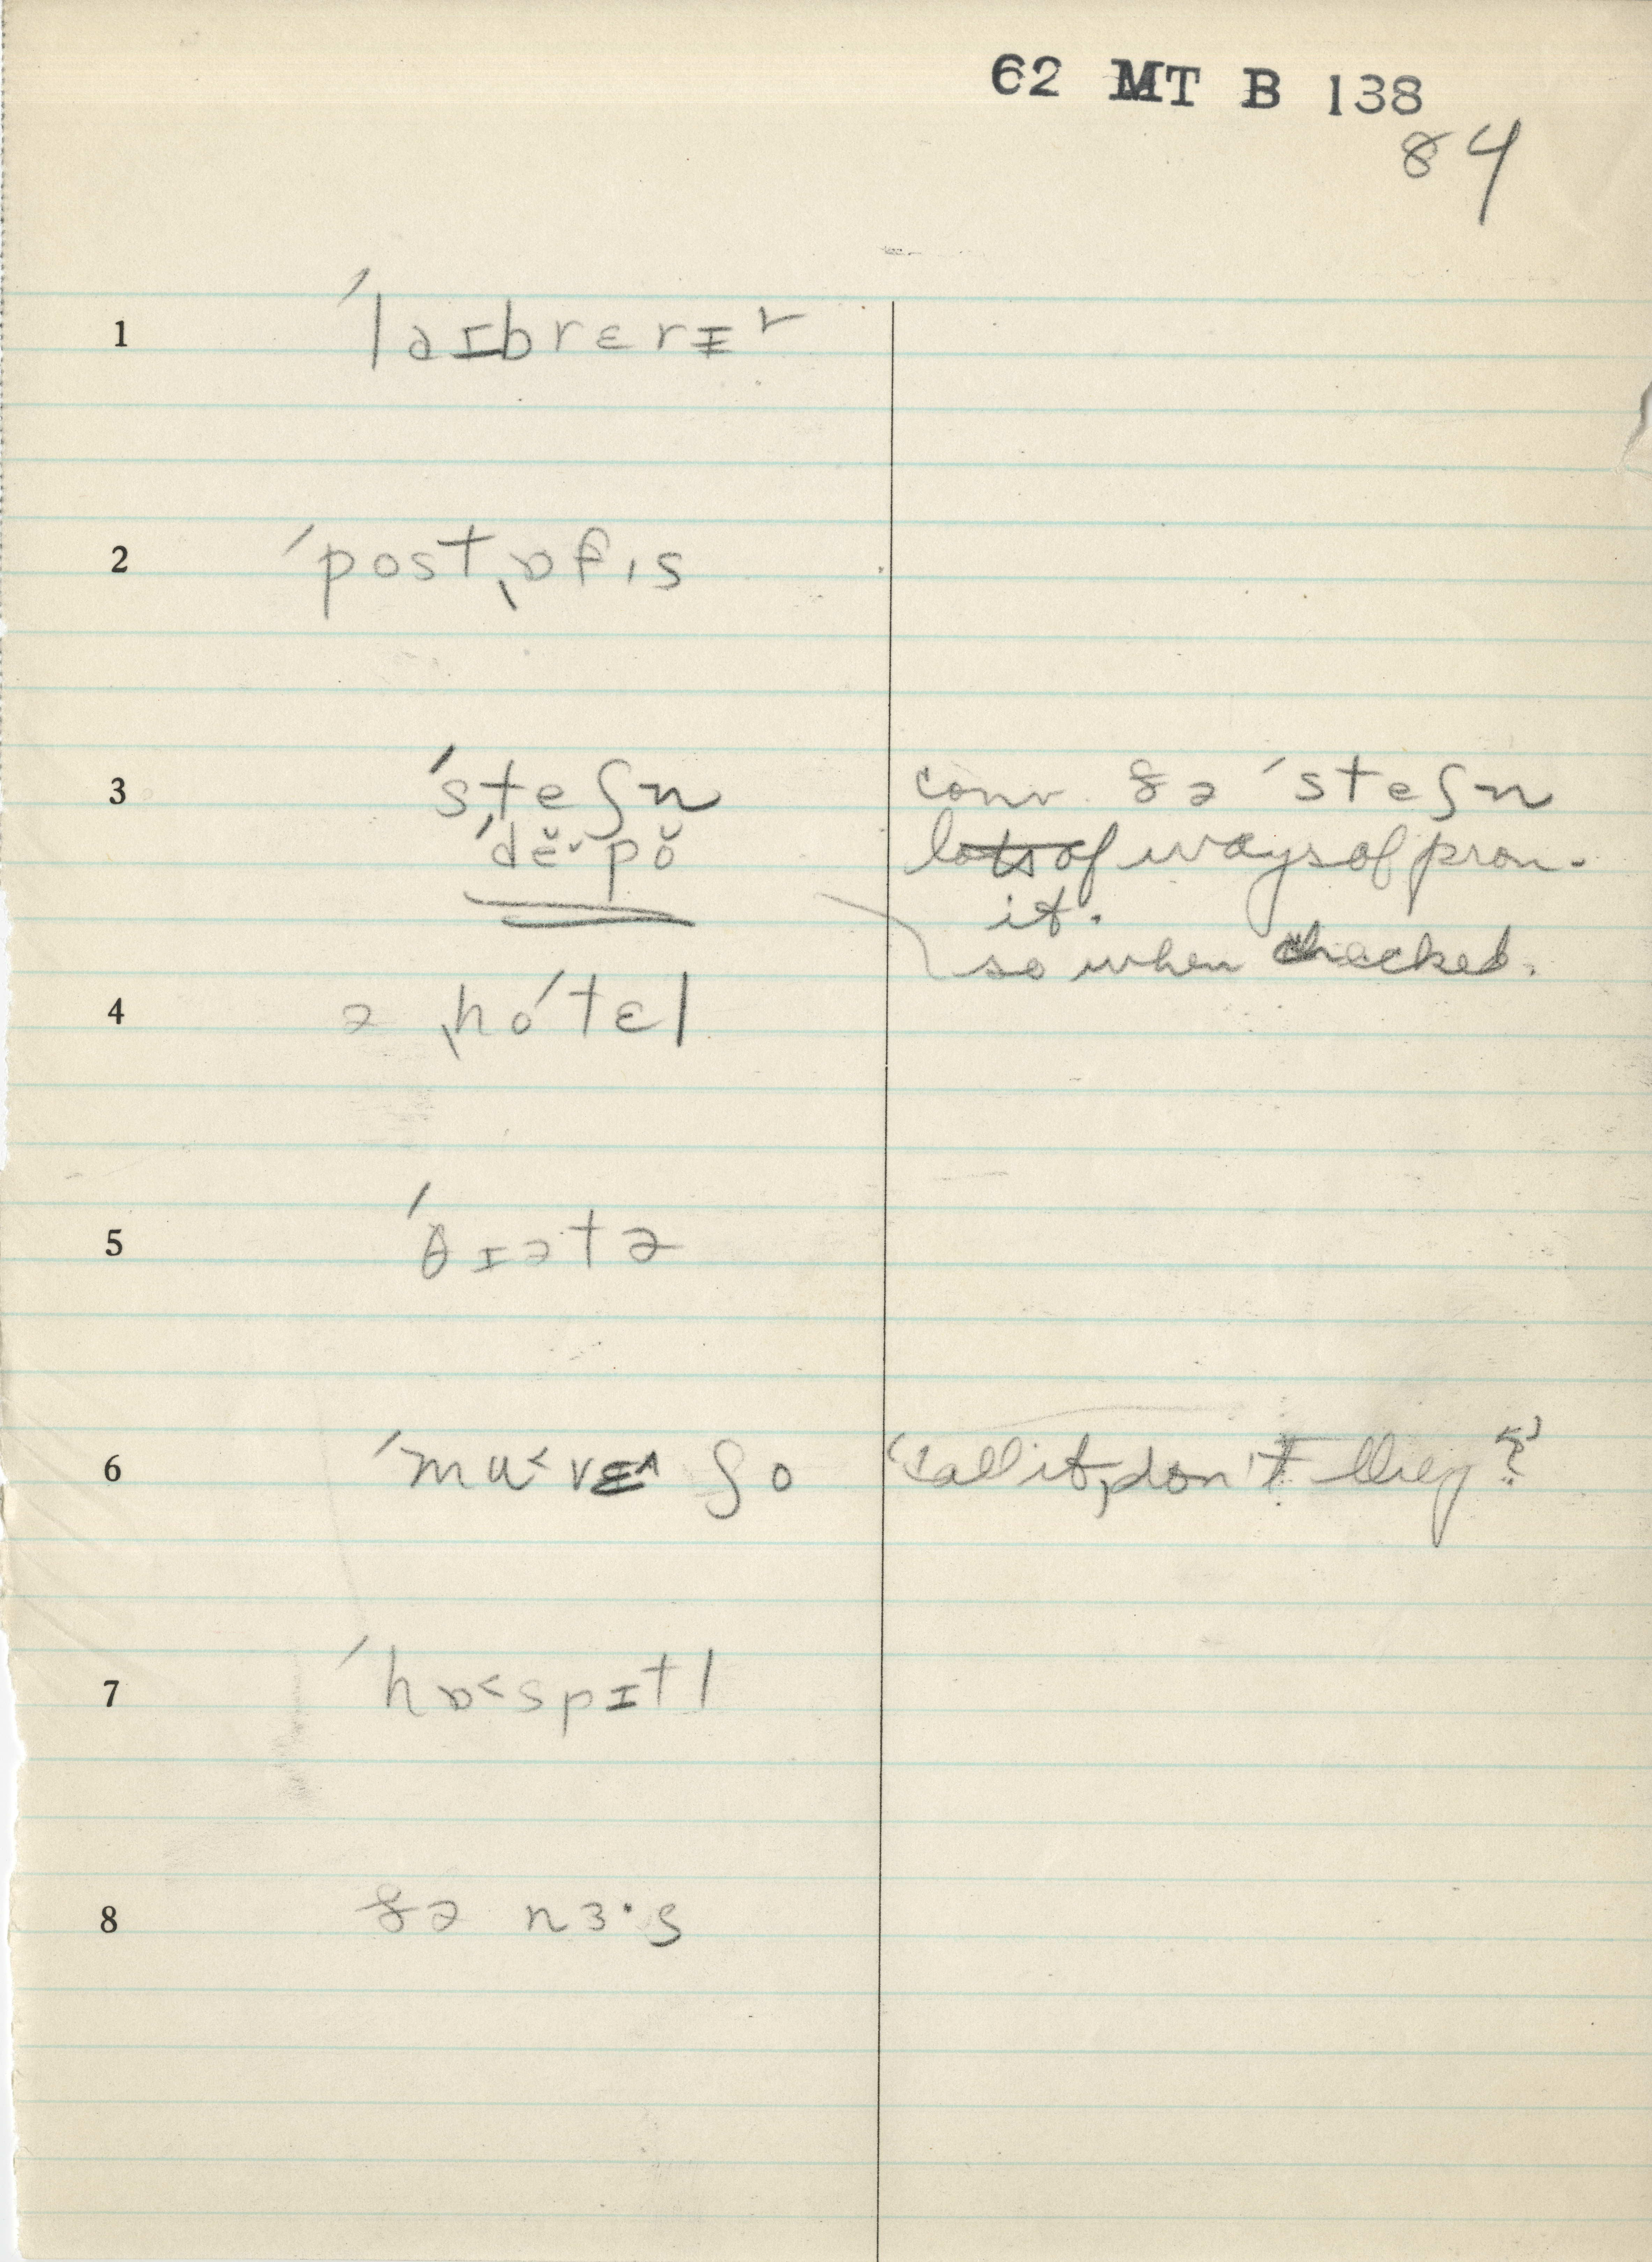 62 MT B 138
84
1 ˈlaɪbrɛrɪ˅
2 ˈpostˌɒfɪs
3 ˈsteʃn̩ conv. ðə ˈsteʃn̩
ˈdĕ˅pŏ lots of ways of pron.
it.
so when checked.
4 ə ˌhoˈtɛl
5 ˈθɪətə
6 ˈmu˂vɪ^ ʃo "call it, don't they?"
7 ˈhɒ˂spɪtl
8 ðə nɜ·s